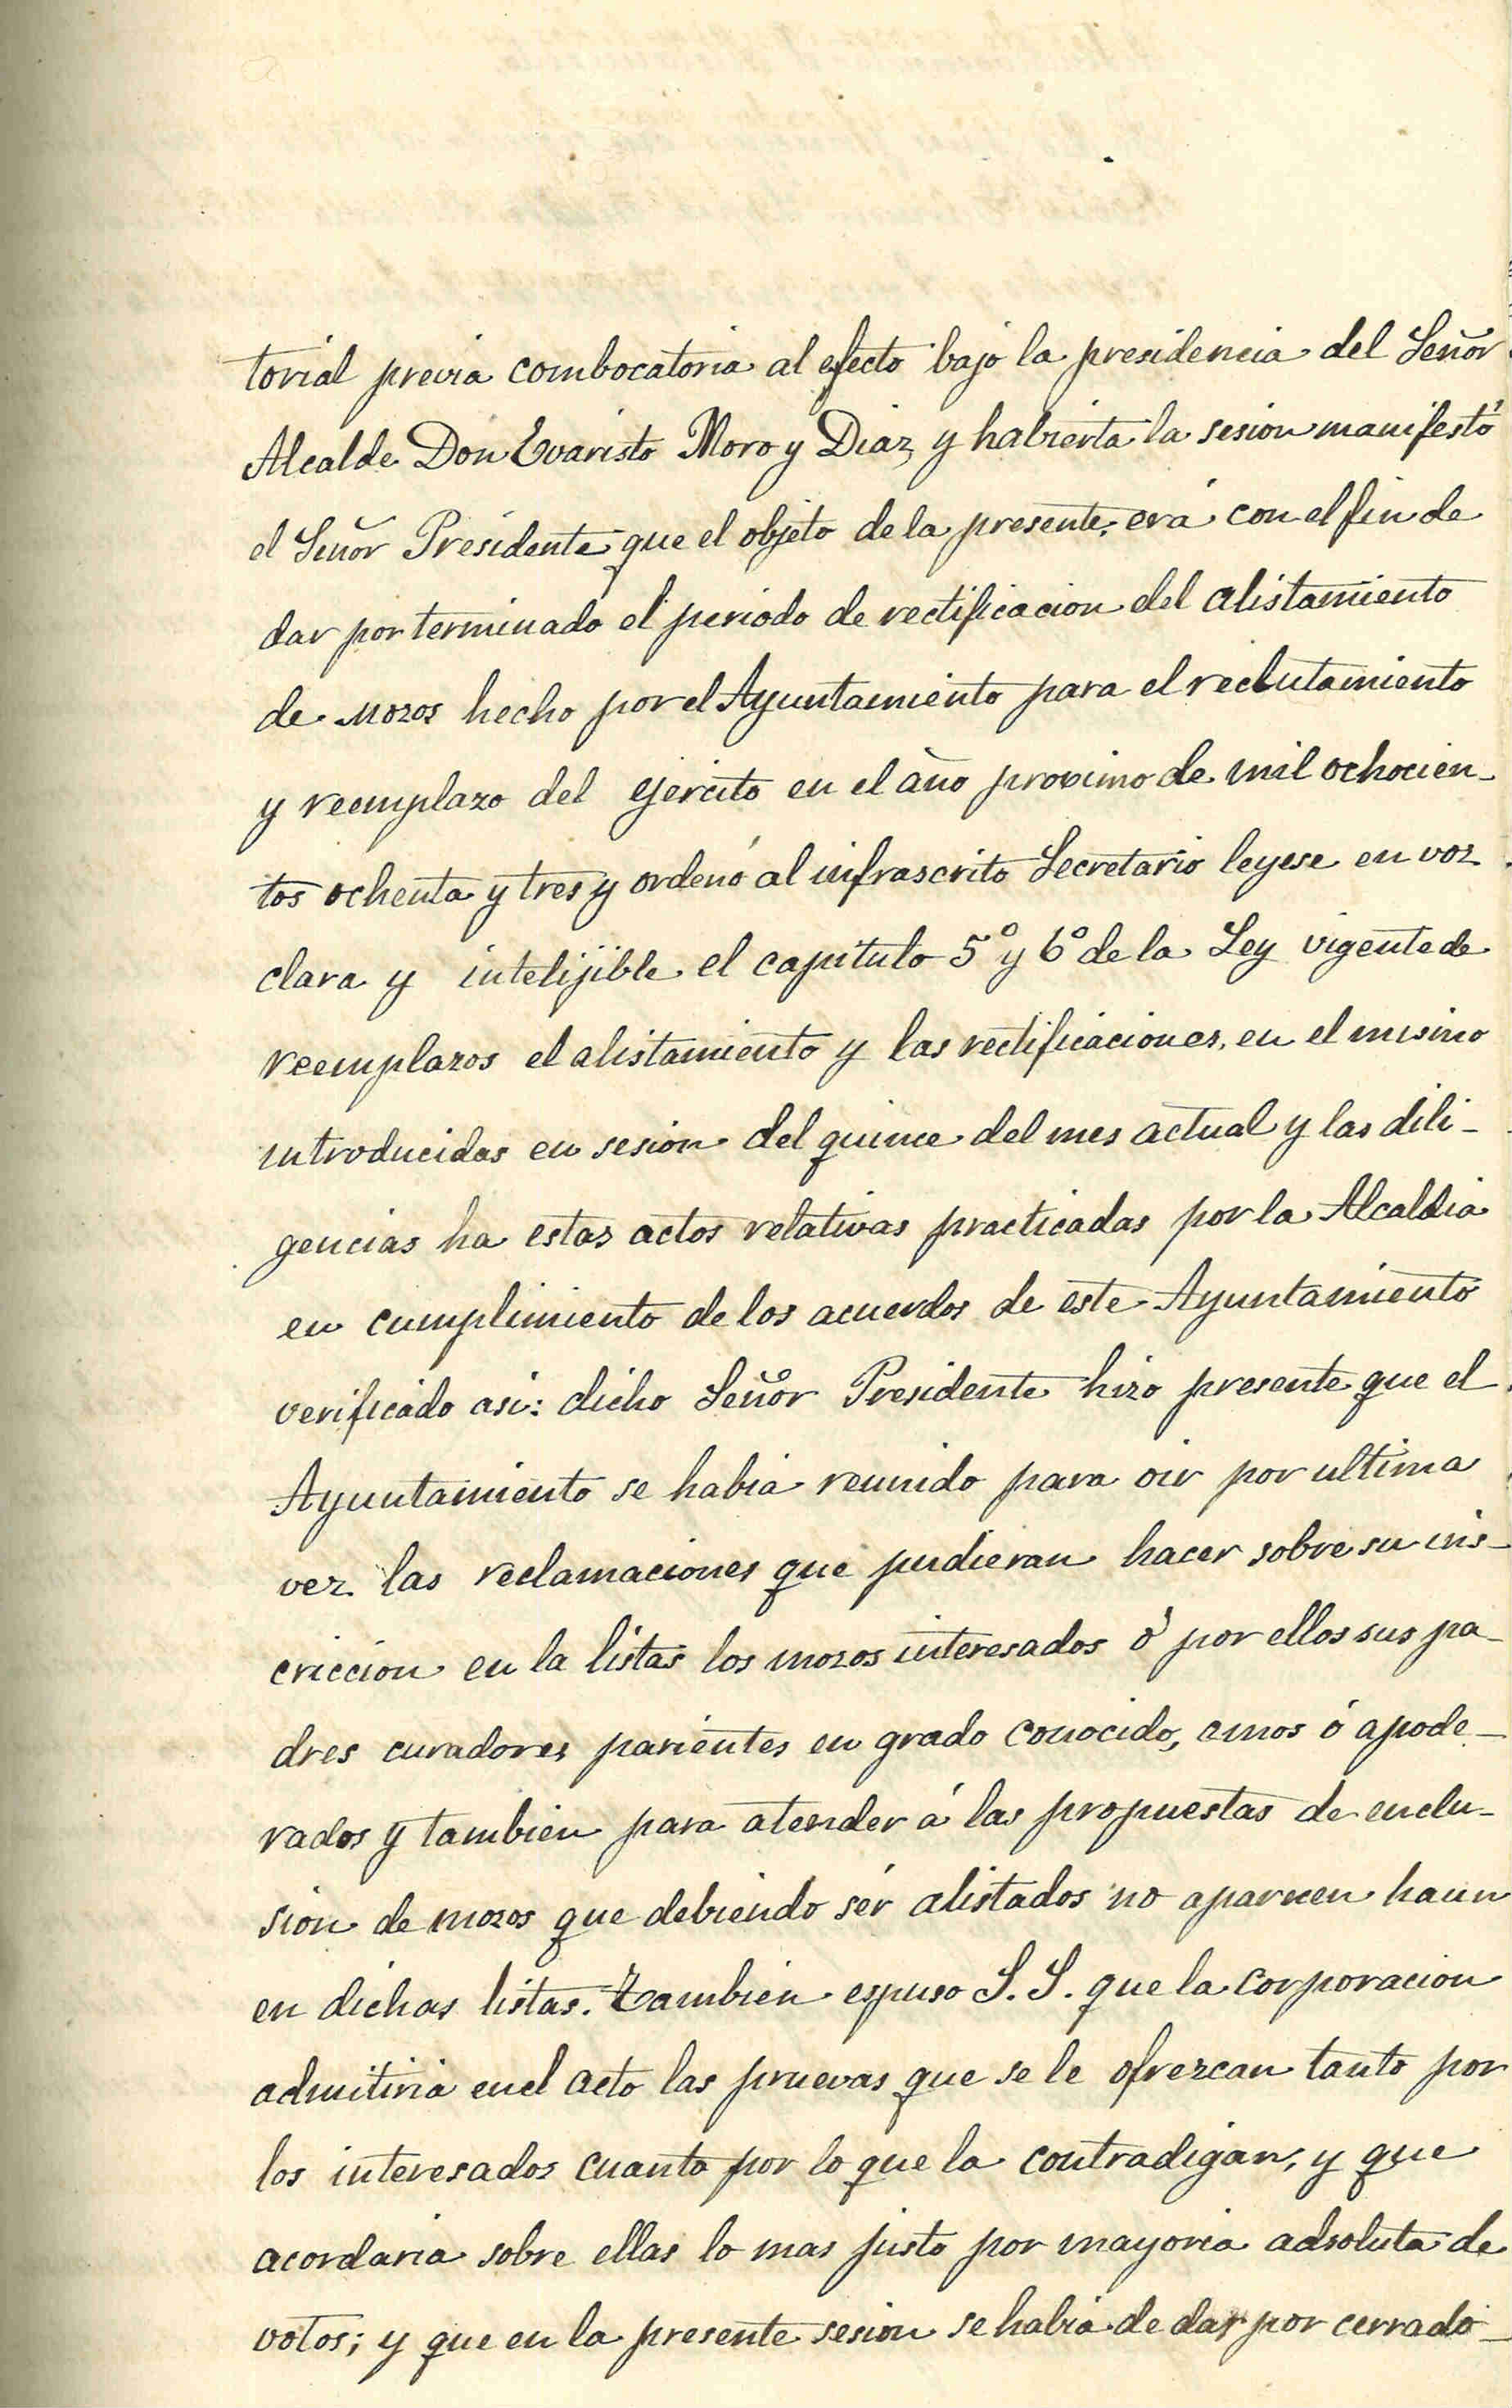 torial previa combocatoria al efecto bajo la presidencia del Señor
Alcalde Don Evaristo Moro y Diaz y habierta la sesion manifestó
el Señor Presidente que el objeto de la presente, erá con el fin de
dar por terminado el periodo de rectificacion del alistamiento
de mozos hecho por el Ayuntamiento para el reclutamiento
y reemplazo del ejercito en el año procsimo de mil ochocien-
tos ochenta y tres y ordenó al infrascrito Secretario leyese en voz
clara y intelijible el capitulo 5º y 6º de la Ley vigente de
reemplazos el alistamiento y las rectificaciones, en el mismo
introducidas en sesion del quince del mes actual y las dili-
gencias ha estas actos relativas practicadas por la Alcaldia
en cumplimiento de los acuerdos de este Ayuntamiento
verificado asi: dicho Señor Presidente hizo presente que el
Ayuntamiento se habia reunido para oir por ultima
vez las reclamaciones que pudieran hacer sobre su ins-
criccion en la listas los mozos interesados ó por ellos sus pa-
dres curadores parientes en grado conocido, amos ó apode-
rados y tambien para atender á las propuestas de enclu-
sion de mozos que debiendo sér alistados no aparecen haun
en dichas listas. Tambien espuso S.S. que la corporacion
admitiria en el acto las pruevas que se le ofrezcan tanto por
los interesados cuanto por lo que la contradigan, y que
acordaria sobre ellas lo mas justo por mayoria adsoluta de
votos; y que en la presente sesion se habia de dar por cerrado-